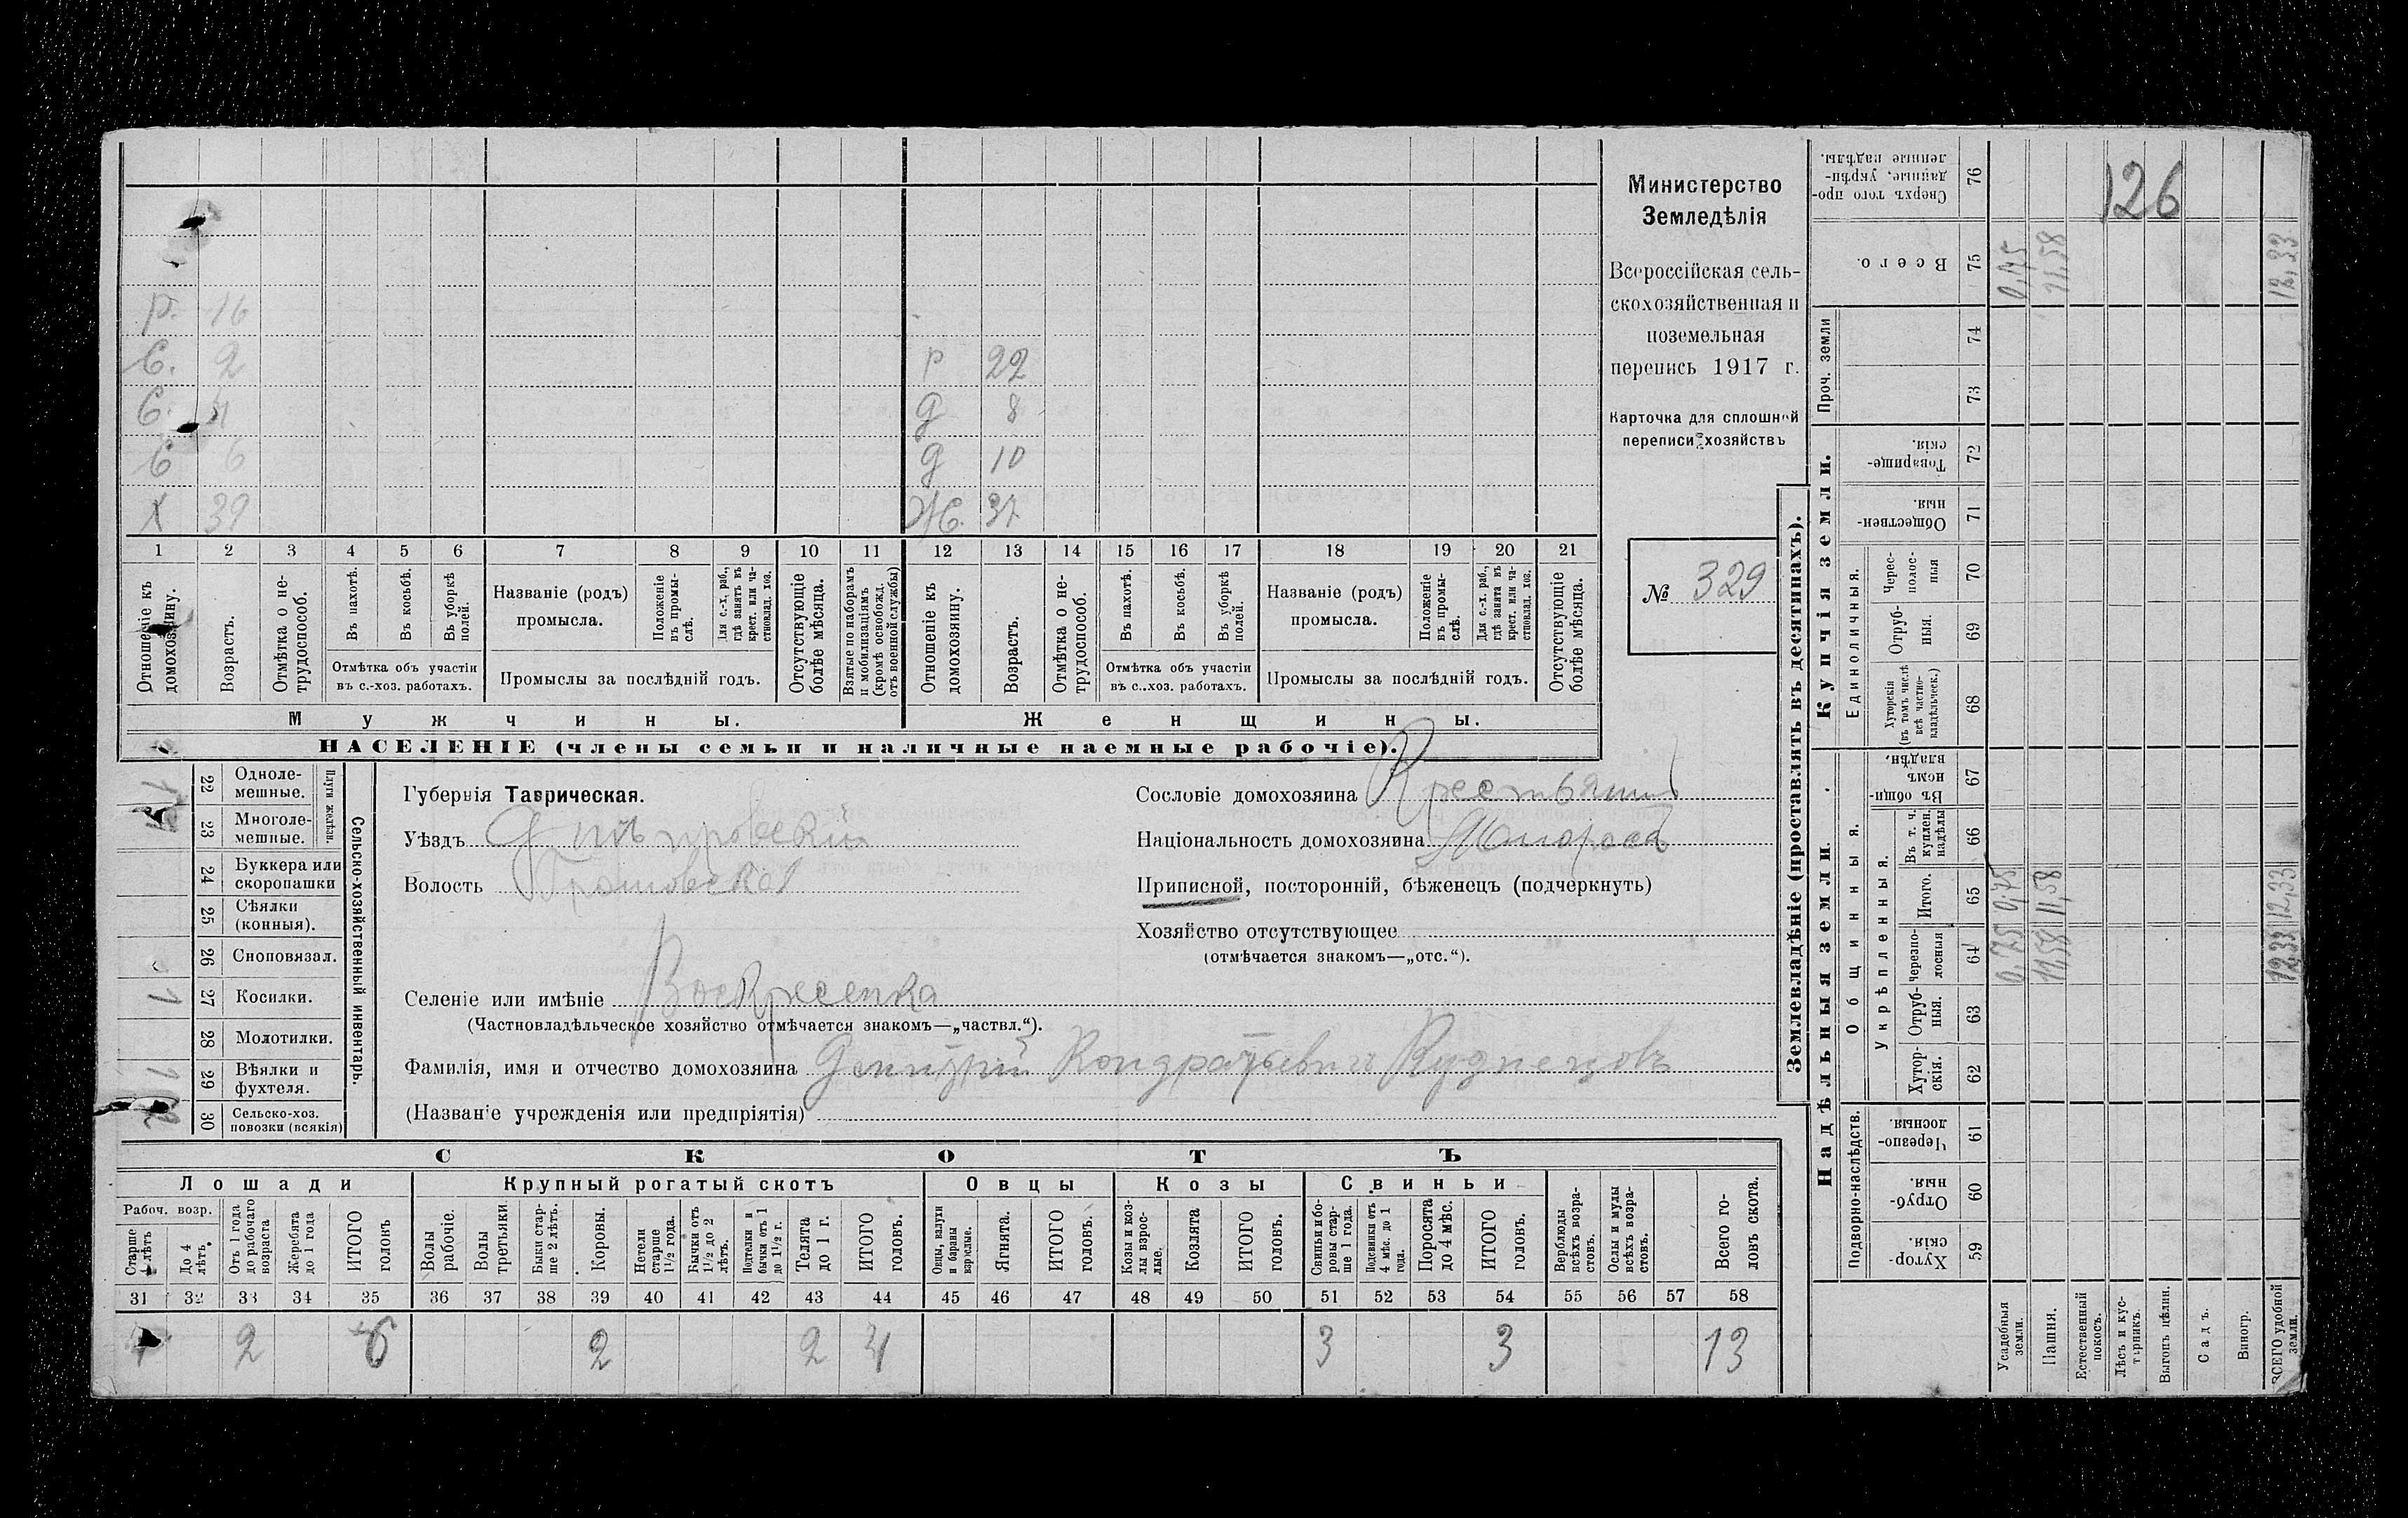 Министерство
Земледѣлія
Всероссійская сель-
скохозяйственная и
поземельная
перепись 1917 г.
Карточка для сплошной
переписи хозяйствъ
№ 329
126
р. 16
С. 2
С. 4
С 6
Х 39
р 22
д 8
д 10
Ж. 37
1 2 3 4 5 6 7 8 9 10 11 12 13 14 15 16 17 18 19 20 21
Отношеніе къ домохозяину.
Возрастъ.
Отмѣтка о не-
трудоспособ.
Въ пахотѣ.
Въ косьбѣ.
Въ уборкѣ
полей.
Отмѣтка объ участіи
въ с.-хоз. работахъ.
Названіе (родъ)
промысла.
Положеніе
въ промы-
слѣ.
Для с.-х. раб.,
гдѣ занятъ въ
крест. или ча-
стновлад. хоз.
Промыслы за послѣдній годъ.
Отсутствующіе
болѣе мѣсяца.
Взятые по наборамъ
и мобилизаціямъ
(кромѣ освобожд.
отъ военной службы)
Отношеніе къ
домохозяину.
Возрастъ.
Отмѣтка о не-
трудоспособ.
Въ пахотѣ.
Въ косьбѣ.
Въ уборкѣ
полей.
Отмѣтка объ участіи
въ с..хоз. работахъ.
Названіе (родъ)
промысла.
Положеніе
въ промы-
слѣ.
Для с.-х. раб.,
гдѣ занята въ
крест. или ча-
стновлад. хоз.
Промыслы за послѣдній годъ.
Отсутствующіе
болѣе мѣсяца.
Мужчины.
Женщины.
НАСЕЛЕНІЕ (члены семьи и наличные наемные рабочіе).
Сельско-хозяйственный инвентарь.
Плуги желѣзн.
22 Одноле-
мешные.
1
23 Многоле-
мешные.
24 Буккера или
скоропашки
25 Сѣялки
(конныя).
26 Сноповязал.
27 Косилки.
1
28 Молотилки.
29 Вѣялки и
фухтеля.
1
30 Сельско-хоз.
повозки (всякія)
2
Губернія Таврическая.
Уѣздъ Днѣпровскій
Волость
Селеніе или имѣніе Воскресенка
(Частновладѣльческое хозяйство отмѣчается знакомъ—„частвл.“).
Фамилія, имя и отчество домохозяина Дмитрій Кондратьевичъ Кузнецовъ
(Названіе учрежденія или предпріятія)
Сословіе домохозяина Крестьянинъ
Національность домохозяина Малороссъ
Приписной, посторонній, бѣженецъ (подчеркнуть)
Хозяйство отсутствующее
(отмѣчается знакомъ—„отс.“).
СКОТЪ
Лошади
Крупный рогатый скотъ
Овцы
Козы
Свиньи
Рабоч. возр.
Старше
4 лѣтъ
До 4
лѣтъ
Отъ 1 года
до рабочаго
возраста
Жеребята
до 1 года
ИТОГО
головъ
Волы
рабочіе.
Волы
третьяки
Быки стар-
ше 2 лѣтъ.
Коровы.
Нетели
старше
1½ года.
Бычки отъ
1½ до 2
лѣтъ.
Подтелки и
бычки отъ 1
до 1½ г.
Телята
до 1 г.
ИТОГО
головъ.
Овцы, валухи
и бараны
взрослые.
Ягнята.
ИТОГО
головъ.
Козы и коз-
лы взрос-
лые.
Козлята
ИТОГО
головъ.
Свиньи и бо-
ровы стар-
ше 1 года.
Подсвинки отъ
4 мѣс. до 1
года.
Поросята
до 4 мѣс.
ИТОГО
головъ.
Верблюды
всѣхъ возра-
стовъ.
Ослы и мулы
всѣхъ возра-
стовъ.
Всего го-
ловъ скота.
31 32 33 34 35 36 37 38 39 40 41 42 43 44 45 46 47 48 49 50 51 52 53 54 55 56 57 58
4 2 6 2 2 4 3 3 13
Землевладѣніе (проставлять въ десятинахъ).
Надѣльныя земли.
Купчія земли.
Проч. земли
Подворно-наслѣдств.
Общинныя.
Укрѣпленныя.
Единоличныя.
Хутор-
скія. 59
Отруб-
ныя. 60
Черезпо-
лосныя. 61
Хутор-
скія. 62
Отруб-
ныя. 63
Черезпо-
лосныя 64
Итого. 65
Въ т. ч.
куплен.
надѣлы 66
Въ общи-
номъ
владѣн. 67
Хуторскія
(въ томъ числѣ
всѣ частно-
владѣльческ.) 68
Отруб-
ныя. 69
Черес-
полос-
ныя 70
Обществен-
ныя 71
Товарище-
скія. 72
73
74
Всего. 75
Сверхъ того про-
данные, укрѣп-
ленные надѣлы. 76
Усадебныя
земли. 0,75 0,75 0,75
Пашня. 11,58 11,58 11,58
Естественный
покосъ.
Лѣсъ и кус-
тарникъ.
Выгонъ цѣлин.
Садъ.
Виногр.
ВСЕГО удобной
земли. 12,33 12,33 12,33